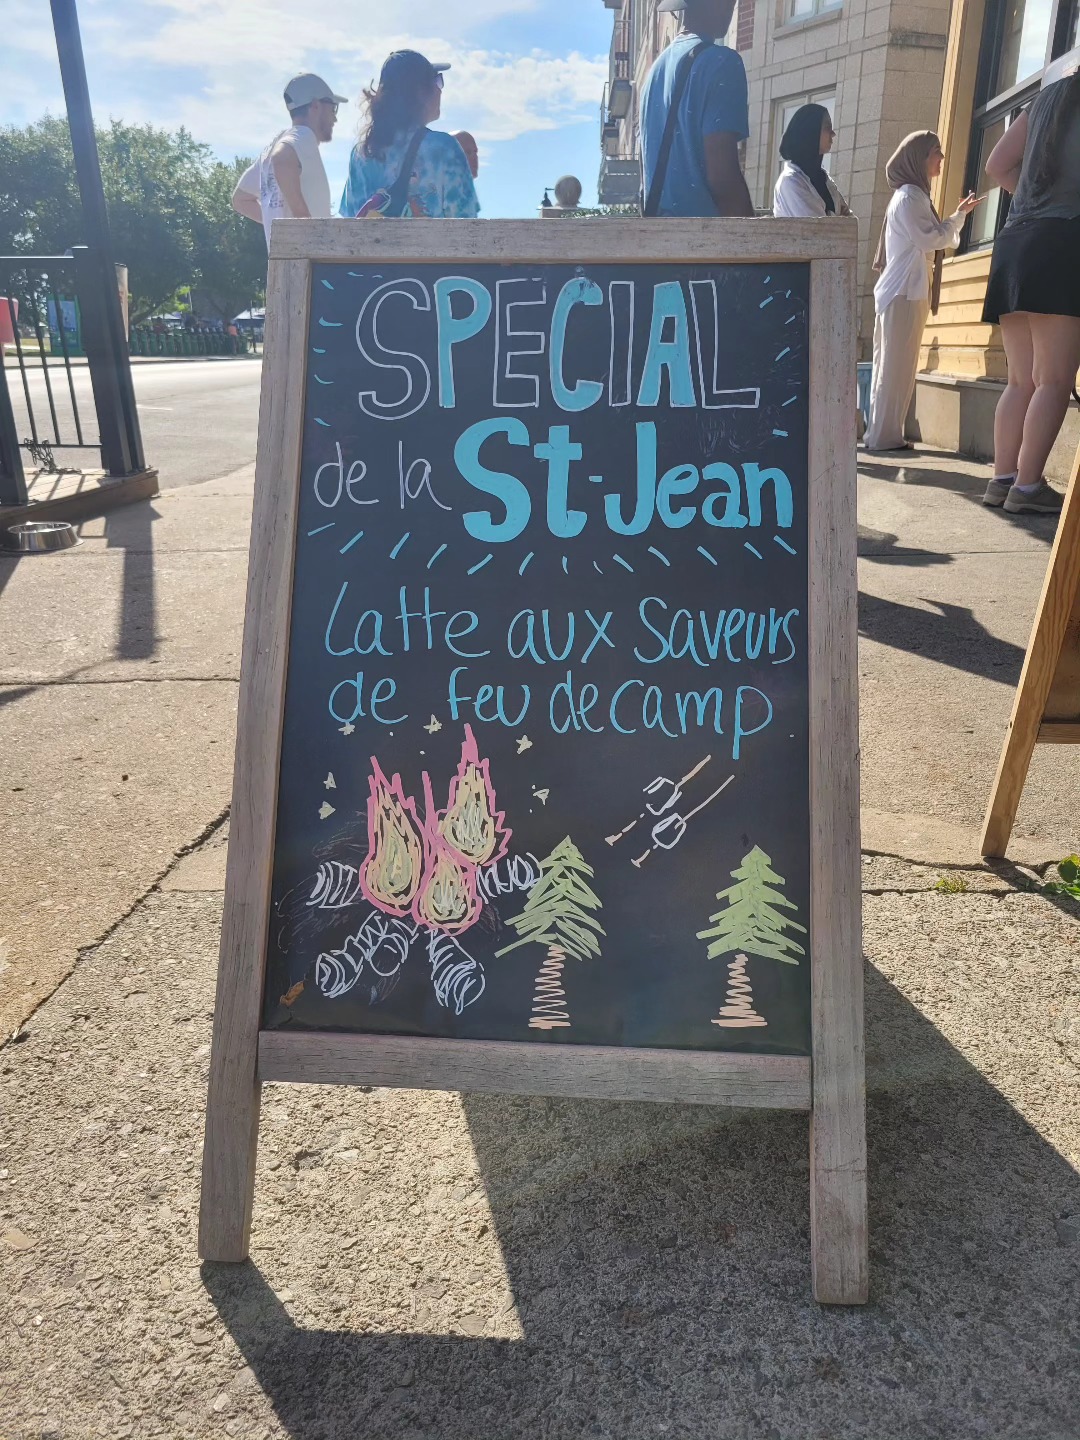 SPECIAL
de la St-Jean
Latte aux saveurs
de feu de camp